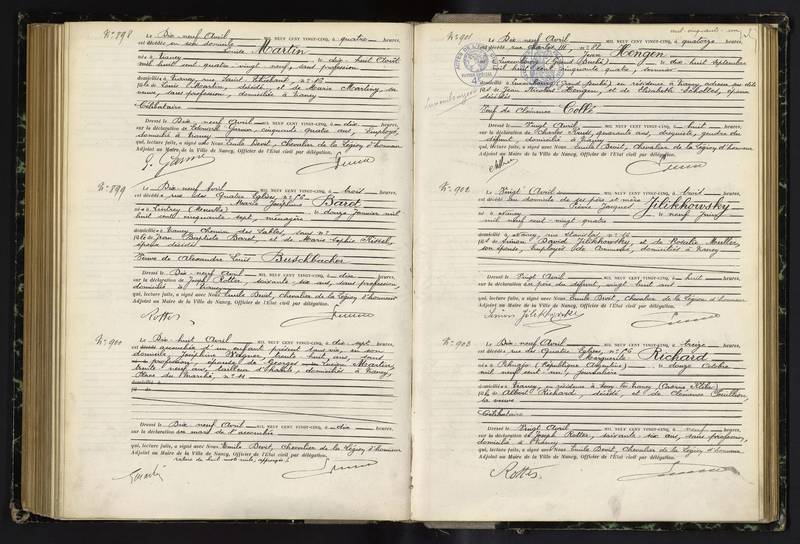 N° 898
Le Dix-neuf Avril MIL NEUF CENT VINGT-CINQ, à quatre heures,
est décédée en son domicile Martin
née à Nancy le dix-huit Août
mil huit cent quatre-vingt-neuf, sans profession
domiciliée à Nancy, rue Saint
fille de Louis Martin, décédé, et de Marie Martin, sa
veuve, sans profession, domiciliée à Nancy
Célibataire
Dressé le Dix-neuf Avril MIL NEUF CENT VINGT-CINQ, à dix heures,
sur la déclaration de Garnier, cinquante quatre ans, employé,
domicilié à Nancy
qui, lecture faite, a signé avec Nous Emile Bevit, Chevalier de la Légion d'honneur
Adjoint au Maire de la Ville de Nancy, Officier de l'État civil par délégation.
N° 899
Le Dix-neuf Avril MIL NEUF CENT VINGT-CINQ, à trois heures,
est décédée rue des Quatre Eglises, n° 56
Marie Joséphine Barot
née à Xeuilley (Meurthe) le douze janvier mil
huit cent cinquante sept, ménagère
domiciliée à Nancy, Chemin des Sables, sans n°
fille de Jean Baptiste Barot, et de Marie Sophie
époux décédés
Veuve de Alexandre Louis Buschbacher
Dressé le Dix-neuf Avril MIL NEUF CENT VINGT-CINQ, à dix heures,
sur la déclaration de Joseph Rotter, soixante six ans, sans profession,
domicilié à Nancy
qui, lecture faite, a signé avec Nous Emile Bevit, Chevalier de la Légion d'honneur
Adjoint au Maire de la Ville de Nancy, Officier de l'État civil par délégation.
Rotter
N° 900
Le Dix-huit Avril MIL NEUF CENT VINGT-CINQ, à dix-sept heures,
est accouchée d'un enfant présent sans vie, en son
domicile, Joséphine Wagner, trente huit ans, sans
profession, épouse de Georges Lucien Martin,
trente neuf ans, tailleur d'habits, domiciliés à Nancy,
Place du Marché, n° 11
domicilié à
Dressé le Dix-neuf Avril MIL NEUF CENT VINGT-CINQ, à dix heures,
sur la déclaration du mari de l'accouchée
qui, lecture faite, a signé avec Nous Emile Bevit, Chevalier de la Légion d'honneur
Adjoint au Maire de la Ville de Nancy, Officier de l'État civil par délégation.
rature de huit mots nuls, approuvée
N° 901
Le Dix-neuf Avril MIL NEUF CENT VINGT-CINQ, à quatorze heures,
est décédé rue Charles III, n° 82
Jean Hengen
à Luxembourg (Grand Duché) le dix huit septembre
mil huit cent cinquante quatre,
Luxembourgeois
domicilié à Luxembourg (Grand Duché) en résidence à Nancy
fils de Jean Nicolas Hengen, et de Elisabeth Scholtes, époux
décédés
Veuf de Clémence Collé
Dressé le Vingt Avril MIL NEUF CENT VINGT-CINQ, à huit heures,
sur la déclaration de Charles quarante ans, droguiste, gendre du
défunt, domicilié à Nancy
qui, lecture faite, a signé avec Nous Emile Bevit, Chevalier de la Légion d'honneur
Adjoint au Maire de la Ville de Nancy, Officier de l'État civil par délégation.
N° 902
Le Vingt Avril MIL NEUF CENT VINGT-CINQ, à trois heures,
est décédé au domicile de ses père et mère
Pierre Jacques Jilikhowsky
né à Nancy le neuf juin
mil neuf cent vingt quatre
domicilié à Nancy, rue Stanislas, n°
fils de Simon David Jilikhowsky, et de Rosalie Muller,
son épouse, employés de commerce, domiciliés à Nancy
Dressé le Vingt Avril MIL NEUF CENT VINGT-CINQ, à huit heures,
sur la déclaration du père du défunt, vingt huit ans
qui, lecture faite, a signé avec Nous Emile Bevit, Chevalier de la Légion d'honneur
Adjoint au Maire de la Ville de Nancy, Officier de l'État civil par délégation.
Simon Jilikhowsky
N° 903
Le Dix-neuf Avril MIL NEUF CENT VINGT-CINQ, à treize heures,
est décédée rue des Quatre Eglises, n° 56
Marguerite Richard
née à Pehuajo (République Argentine) le douze Octobre
mil neuf cent un, journalière
domiciliée à Nancy, en résidence à
fille de Albert Richard, décédé, et de Clémence
sa veuve
Célibataire
Dressé le Vingt Avril MIL NEUF CENT VINGT-CINQ, à neuf heures,
sur la déclaration de Joseph Rotter, soixante-six ans, sans profession,
domicilié à Nancy
qui, lecture faite, a signé avec Nous Emile Bevit, Chevalier de la Légion d'honneur
Adjoint au Maire de la Ville de Nancy, Officier de l'État civil par délégation.
Rotter